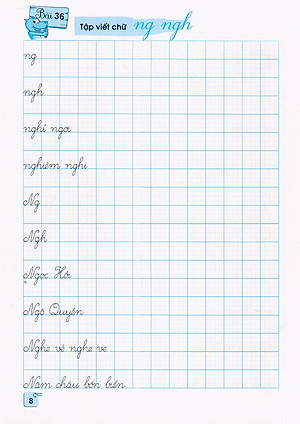 Bài 36
Tập viết chữ ng ngh
ng
ngh
nghỉ ngơi
nghiêm nghị
Ng
Ngh
Ngọc Hồi
Ngô Quyền
Nghe vẻ nghe ve
Năm châu bốn biển
8